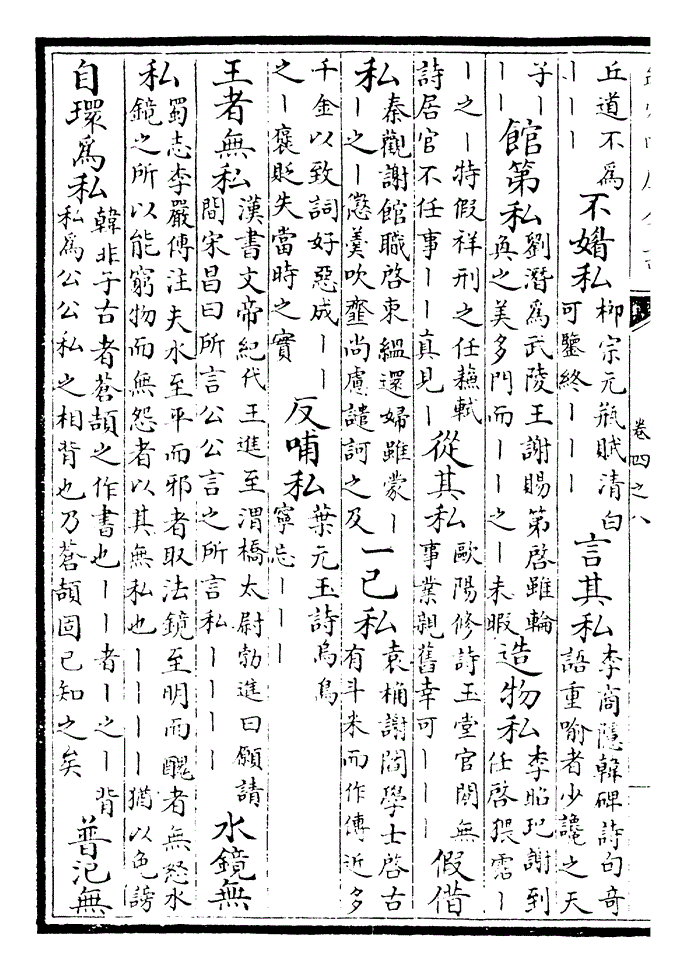 卷四之八
丘道不為
丨丨丨
不媚私
柳宗元瓶賦清白
可鑒終丨丨丨
言其私
李商隱韓碑詩句奇
語重喻者少讒之天
子丨
丨丨
館第私
劉潛為武陵王謝賜第啓雖輪
奐之美多門而丨丨之丨未暇
造物私
李昭玘謝到
任啓猥霑丨
丨之丨特假祥刑之任蘇軾
詩居官不任事丨丨真見丨
從其私
歐陽修詩玉堂官閒無
事業親舊幸可丨丨丨
假借
私
秦觀謝館職啓束緼還婦雖蒙丨
丨之丨懲羹吹虀尚慮譴訶之及
一已私
袁桷謝閻學士啓古
有斗米而作傳近多
千金以致詞好惡成丨丨
之丨褒貶失當時之實
反哺私
葉元玉詩烏鳥
寧忘丨丨丨
王者無私
漢書文帝紀代王進至渭橋太尉勃進曰願請
間宋昌曰所言公公言之所言私丨丨丨丨
水鏡無
私
蜀志李嚴傳注夫水至平而邪者取法鏡至明而醜者無怒水
鏡之所以能窮物而無怨者以其無私也丨丨丨丨猶以色謗
自環為私
韓非子古者蒼頡之作書也丨丨者丨之丨背
私為公公私之相背也乃蒼頡固已知之矣
普汜無